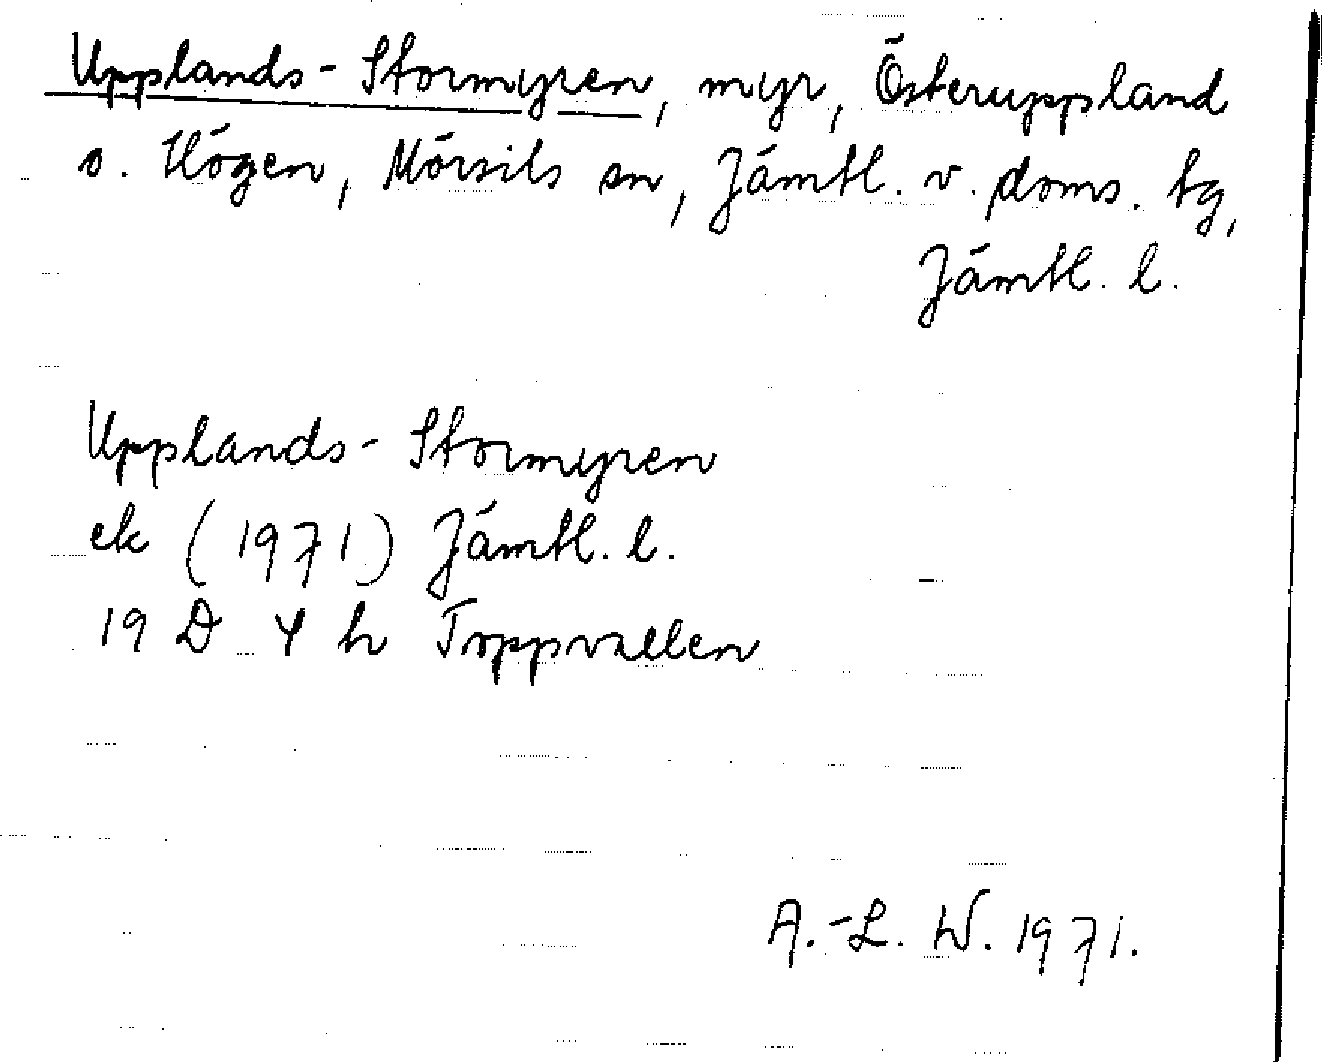 Upplands-Stormyren, myr, Österuppland
o. Högen, Mörsils sn, Jämtl. v. doms. tg,
Jämtl. l.
Upplands-Stormyren
ek (1971) Jämtl. l.
19 D 4 h Toppvallen
A.-L. W. 1971.